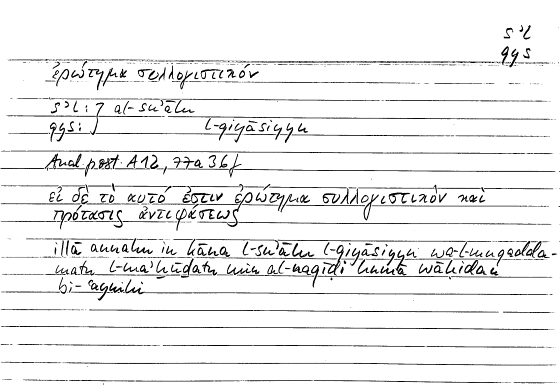 s ʾ l
qys
ἐρώτημα συλλογιστικόν
sʾl: } al-suʾālu
qys: } l-qiyāsiyyu
Anal post A 12, 77a 36f
εἰ δὲ τὸ αὐτό ἐστιν ἐρώτημα συλλογιστικὸν καὶ
πρότασις ἀντιφάσεως
illā annahu in kāna l-suʾālu l-qiyāsiyyu wa-l-muqadda-
matu l-maʾḫūḏatu min al-naqīḍi humā wāḥidan
bi-ʿaynihi